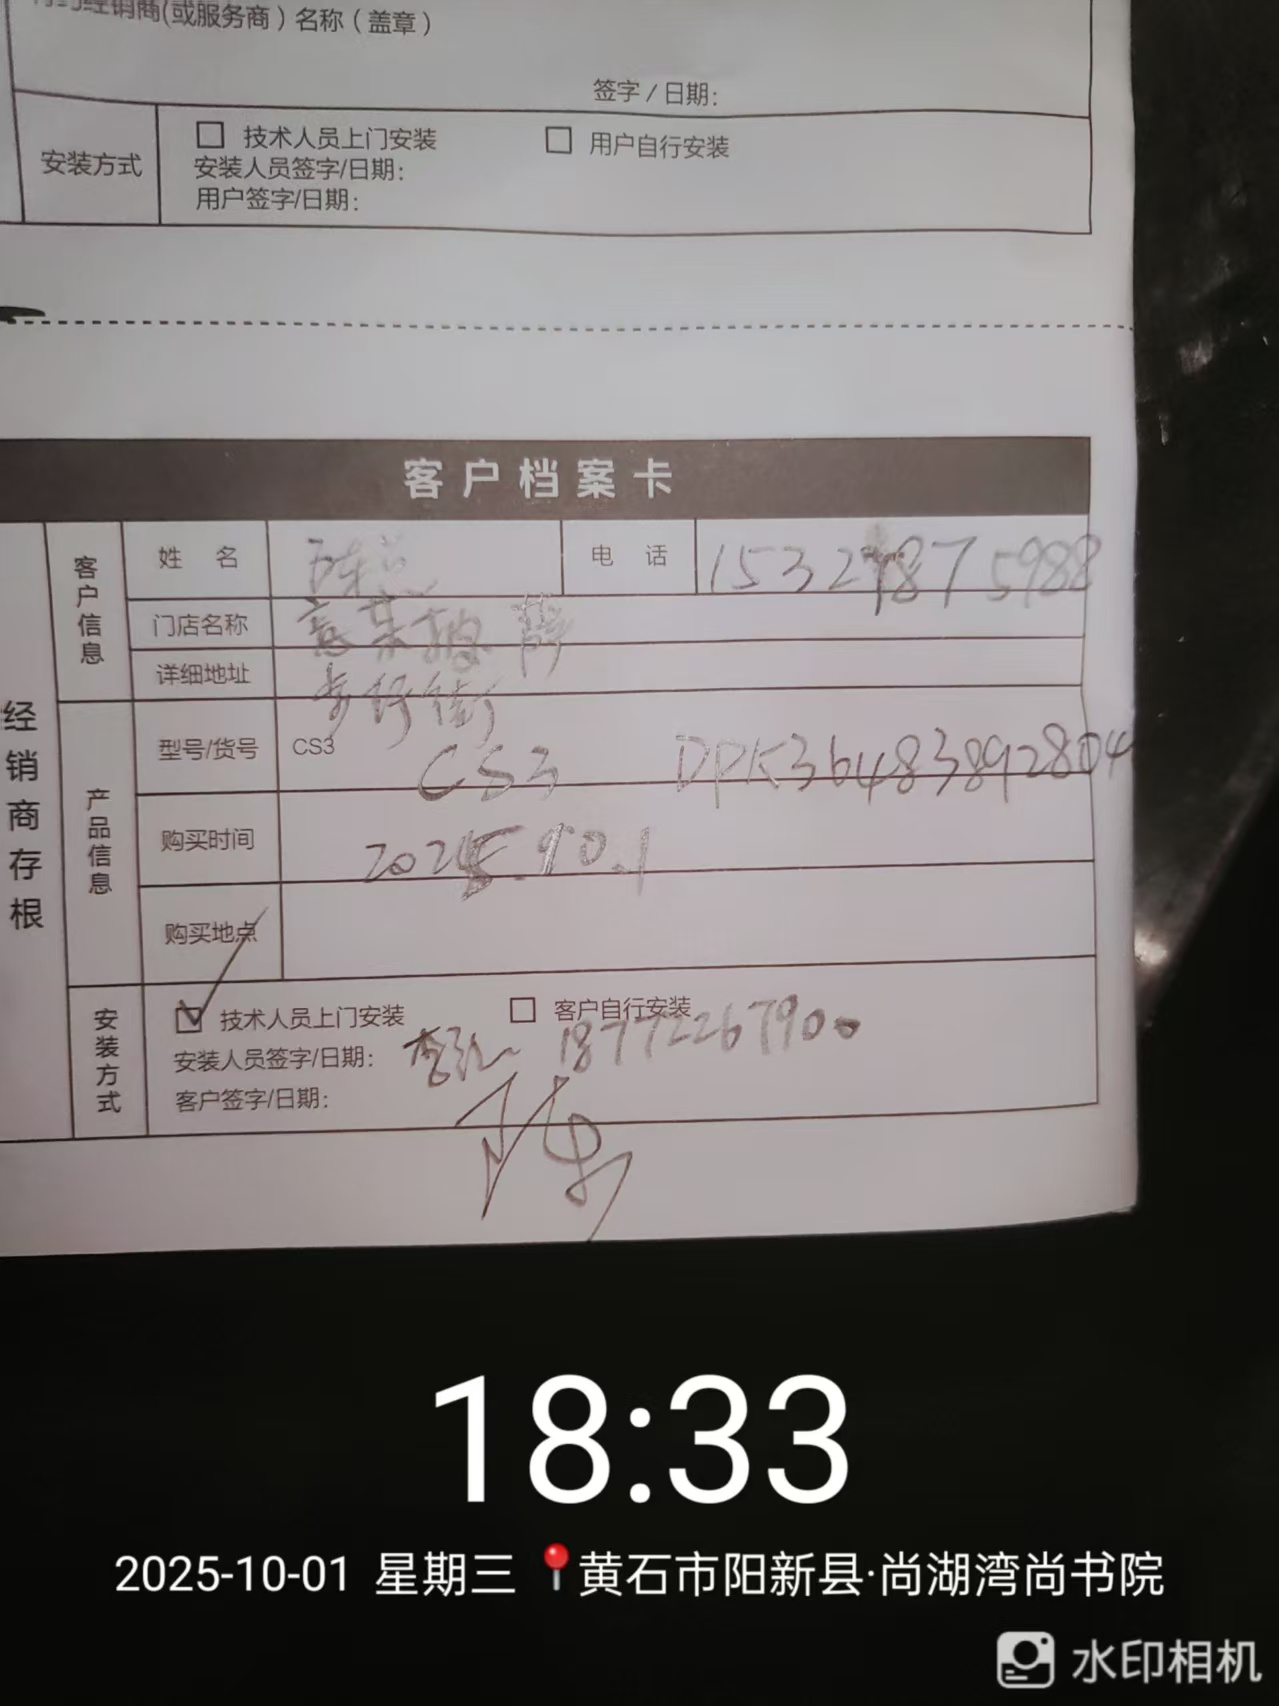 经销商(或服务商)名称(盖章)
签字/日期:
安装方式
□ 技术人员上门安装 □ 用户自行安装
安装人员签字/日期:
用户签字/日期:
客户档案卡
经销商存根
客户信息
姓名 陈总 电话
门店名称
详细地址 步行街
产品信息
型号/货号 CS3 CS3 DPK36483892804
购买时间 2025.10.1
购买地点
安装方式
☑ 技术人员上门安装 □ 客户自行安装
安装人员签字/日期: 18772267900
客户签字/日期: 陈
18:33
2025-10-01 星期三 📍黄石市阳新县·尚湖湾尚书院
水印相机